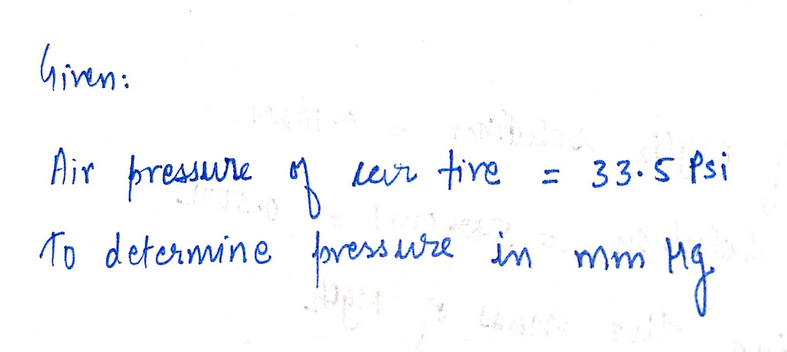 Given:
Air pressure of car tire = 33.5 Psi
To determine pressure in mm Hg